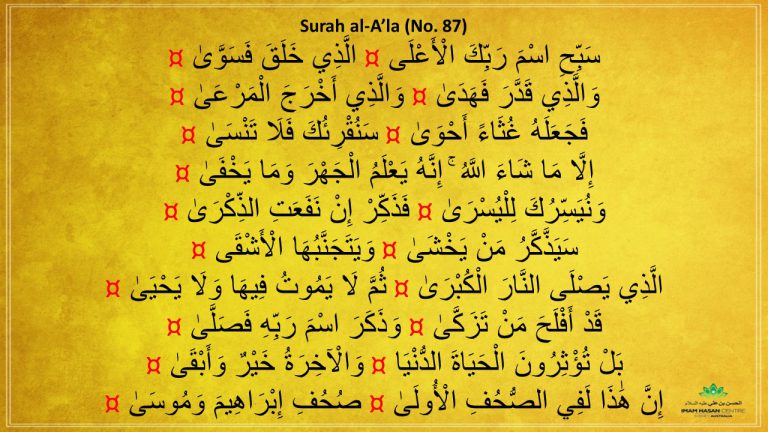 Surah al-A’la (No. 87)
سَبِّحِ اسْمَ رَبِّكَ الْأَعْلَى ¤ الَّذِي خَلَقَ فَسَوَّىٰ ¤
وَالَّذِي قَدَّرَ فَهَدَىٰ ¤ وَالَّذِي أَخْرَجَ الْمَرْعَىٰ ¤
فَجَعَلَهُ غُثَاءً أَحْوَىٰ ¤ سَنُقْرِئُكَ فَلَا تَنْسَىٰ ¤
إِلَّا مَا شَاءَ اللَّهُ ۚ إِنَّهُ يَعْلَمُ الْجَهْرَ وَمَا يَخْفَىٰ ¤
وَنُيَسِّرُكَ لِلْيُسْرَىٰ ¤ فَذَكِّرْ إِنْ نَفَعَتِ الذِّكْرَىٰ ¤
سَيَذَّكَّرُ مَنْ يَخْشَىٰ ¤ وَيَتَجَنَّبُهَا الْأَشْقَى ¤
الَّذِي يَصْلَى النَّارَ الْكُبْرَىٰ ¤ ثُمَّ لَا يَمُوتُ فِيهَا وَلَا يَحْيَىٰ ¤
قَدْ أَفْلَحَ مَنْ تَزَكَّىٰ ¤ وَذَكَرَ اسْمَ رَبِّهِ فَصَلَّىٰ ¤
بَلْ تُؤْثِرُونَ الْحَيَاةَ الدُّنْيَا ¤ وَالْآخِرَةُ خَيْرٌ وَأَبْقَىٰ ¤
إِنَّ هَٰذَا لَفِي الصُّحُفِ الْأُولَىٰ ¤ صُحُفِ إِبْرَاهِيمَ وَمُوسَىٰ ¤
الحسن بن علي عليه السلام
IMAM HASAN CENTRE
SYDNEY AUSTRALIA